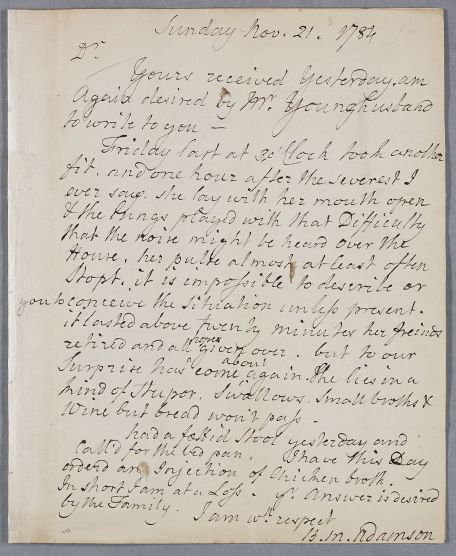 Sunday Nov. 21. 1784
Dr.
Yours received Yesterday, am
Again desired by Mr. Younghusband
to write to you —
Friday last at 3 o'Clock took another
fit. and one hour after the severest I
ever saw. she lay with her mouth open
& the lungs played with that Difficulty
that the noise might be heard over the
House, her pulse almost at least often
Stopt. it is impossible to describe or
you to conceive the situation unless present.
it lasted above twenty minutes her freinds
retired and all hopes given over. but to our
Surprise has come about again. She lies in a
kind of Stupor. Swallows. Small broths &
Wine but bread won't pass.
had a foetid Stool yesterday and
Call'd for the bed pan. I have this Day
orderd an Injection of Chicken broth.
In short I am at a Loss. yr. Answer is desired
by the Family. I am wt. respect
B. In. Adamson